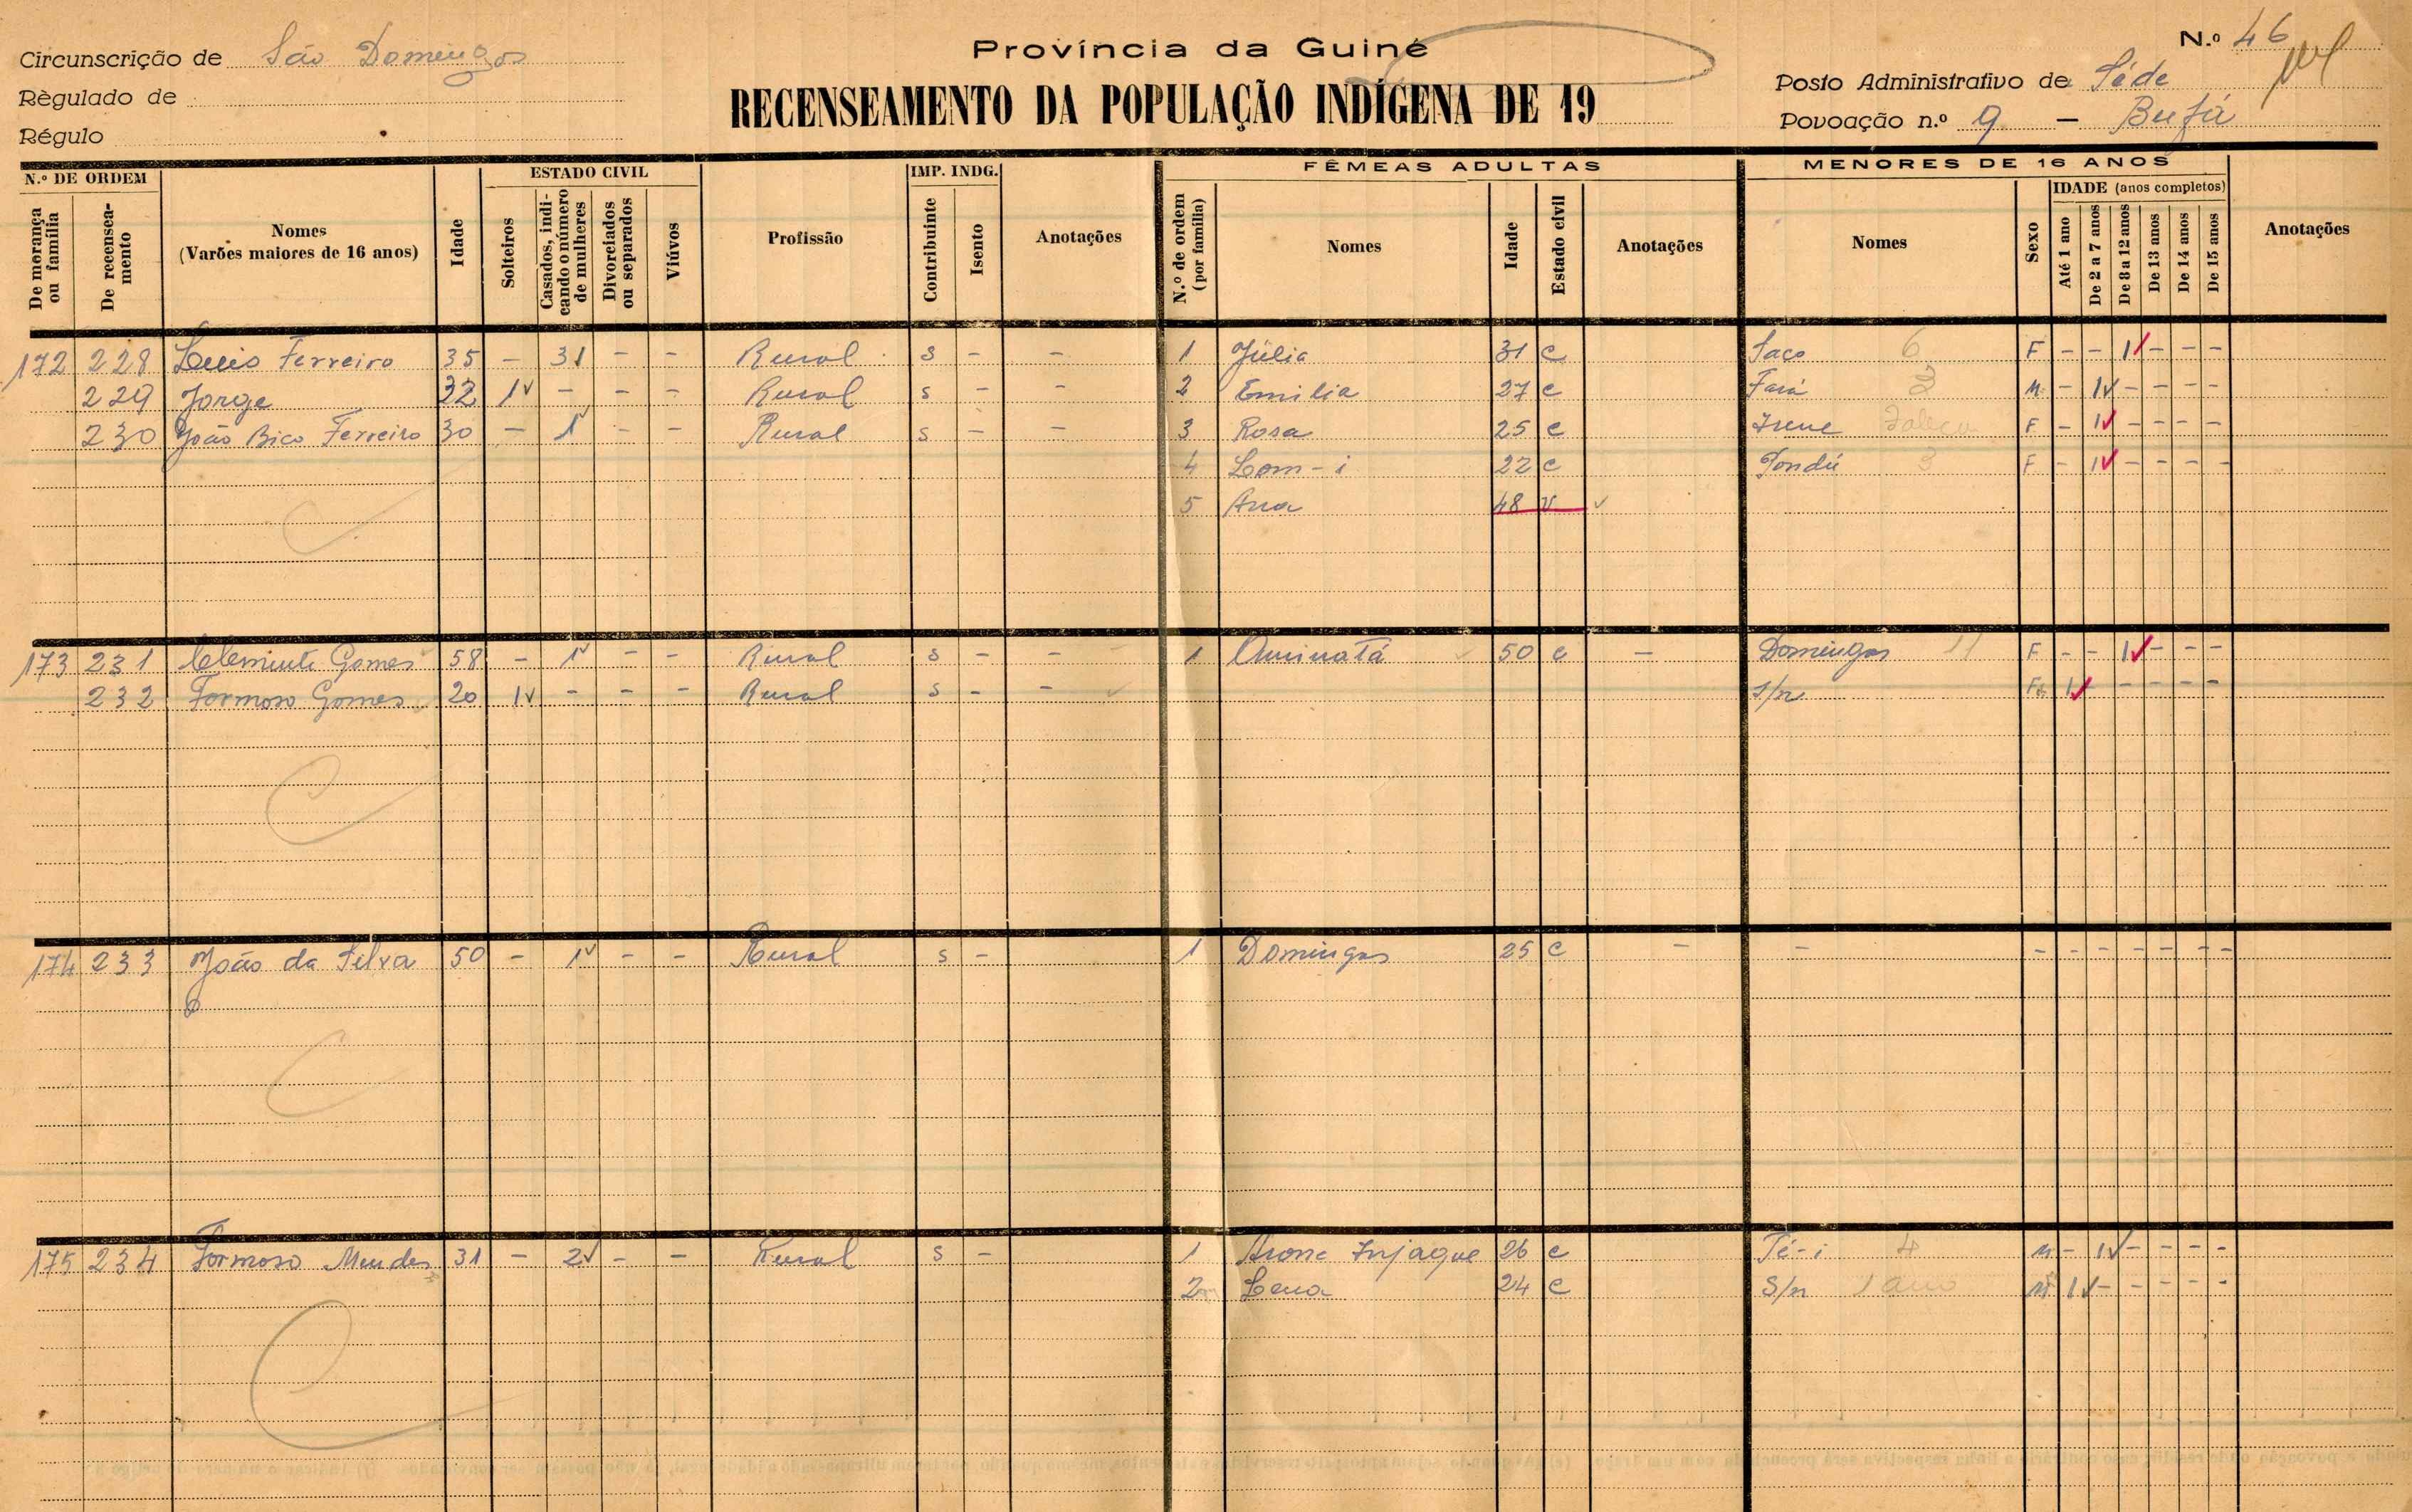 Província da Guiné
RECENSEAMENTO DA POPULAÇÃO INDÍGENA DE 19
Circunscrição de São Domingos
Règulado de
Régulo
N.º 46
Posto Administrativo de Séde
Povoação n.º 9 — Bufá
N.º DE ORDEM
De morança ou família
De recensea-mento
Nomes
(Varões maiores de 16 anos)
Idade
ESTADO CIVIL
Solteiros
Casados, indi-cando o número de mulheres
Divorciados ou separados
Viúvos
Profissão
IMP. INDG.
Contribuinte
Isento
Anotações
FÊMEAS ADULTAS
N.º de ordem (por família)
Nomes
Idade
Estado civil
Anotações
MENORES DE 16 ANOS
Nomes
Sexo
IDADE (anos completos)
Até 1 ano
De 2 a 7 anos
De 8 a 12 anos
De 13 anos
De 14 anos
De 15 anos
Anotações
172 228 Luis Ferreira 35 - 3 - - Rural s - - 1 Júlia 31 c Saco 6 F - - 1 - - -
229 Jorge 32 1 - - - Rural s - - 2 Emilia 27 c Fará 3 M - 1 - - - -
230 João Bico Ferreira 30 - 1 - - Rural s - - 3 Rosa 25 c Irene F - 1 - - - -
4 Lom-i 22 c Tondú 3 F - 1 - - - -
5 Ana 48 v
173 231 Clemente Gomes 58 - 1 - - Rural s - - 1 Aminatá 50 c - Domingas 11 F - - 1 - - -
232 Formoso Gomes 20 1 - - - Rural s - - s/n F 1 - - - -
174 233 João da Silva 50 - 1 - - Rural s - 1 Domingas 25 c - - - - - - - - -
175 234 Formoso Mendes 31 - 2 - - Rural s - 1 Arona Injaque 26 c Té-i 4 M - 1 - - - -
2 Lena 24 c S/n 1 ano M 1 - - - - -